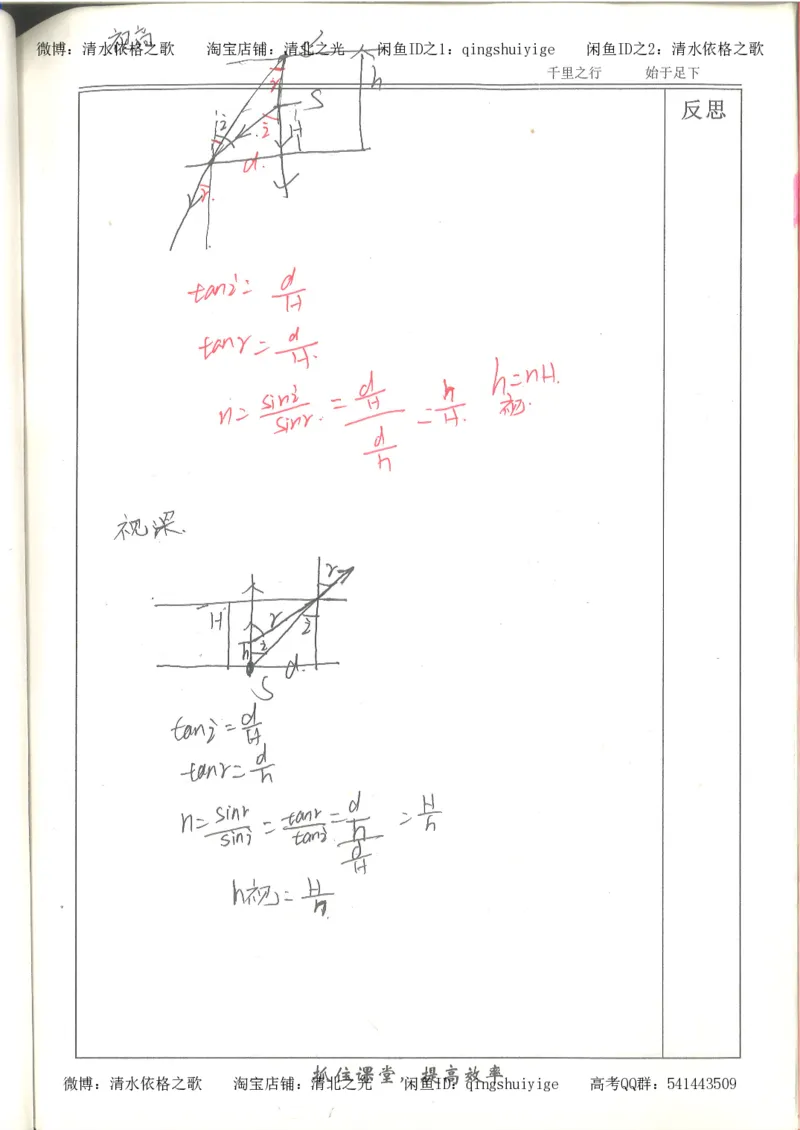 视高
微博：清水依格之歌 淘宝店铺：清北之光 闲鱼ID之1：qingshuiyige 闲鱼ID之2：清水依格之歌
千里之行 始于足下
反思
S'
r
h
S
i
i
H
d.
r.
tani = d/H
tanr = d/H.
n = sini/sinr. = (d/H)/(d/h) = h/H. h视 = nH.
视深.
r
H
r
i
h
i
d.
S
tani = d/H
tanr = d/h
n = sinr/sini = tanr/tani = (d/h)/(d/H) = H/h
h视 = H/n.
抓住课堂，提高效率
微博：清水依格之歌 淘宝店铺：清北之光 闲鱼ID：qingshuiyige 高考QQ群：541443509